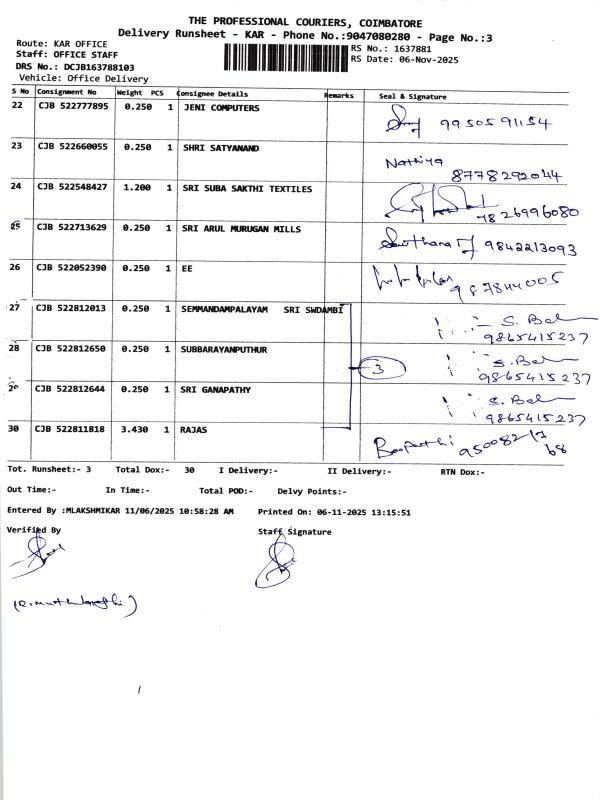 THE PROFESSIONAL COURIERS, COIMBATORE
Delivery Runsheet - KAR - Phone No.:9047080280 - Page No.:3
Route: KAR OFFICE RS No.: 1637881
Staff: OFFICE STAFF RS Date: 06-Nov-2025
DRS No.: DCJB163788103
Vehicle: Office Delivery
S No Consignment No Weight PCS Consignee Details Remarks Seal & Signature
22 CJB 522777895 0.250 1 JENI COMPUTERS 9950591154
23 CJB 522660055 0.250 1 SHRI SATYANAND Nathiya
8778292044
24 CJB 522548427 1.200 1 SRI SUBA SAKTHI TEXTILES
7826996080
25 CJB 522713629 0.250 1 SRI ARUL MURUGAN MILLS 9842213093
26 CJB 522052390 0.250 1 EE
27 CJB 522812013 0.250 1 SEMMANDAMPALAYAM SRI SWDAMBI S. Bal
9865415237
28 CJB 522812650 0.250 1 SUBBARAYANPUTHUR 3 S. Bal
9865415237
29 CJB 522812644 0.250 1 SRI GANAPATHY S. Bal
9865415237
30 CJB 522811818 3.430 1 RAJAS 95008217
68
Tot. Runsheet:- 3 Total Dox:- 30 I Delivery:- II Delivery:- RTN Dox:-
Out Time:- In Time:- Total POD:- Delvy Points:-
Entered By :MLAKSHMIKAR 11/06/2025 10:58:28 AM Printed On: 06-11-2025 13:15:51
Verified By Staff Signature